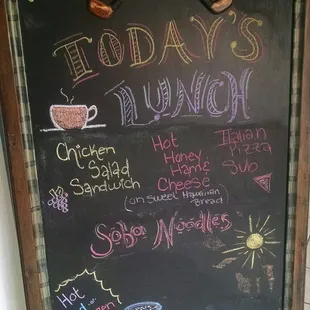 TODAY'S
LUNCH
Chicken
Salad
Sandwich
Hot
Honey
Ham &
Cheese
(on sweet Hawaiian
Bread)
Italian
Pizza
Sub
Soba Noodles
Hot